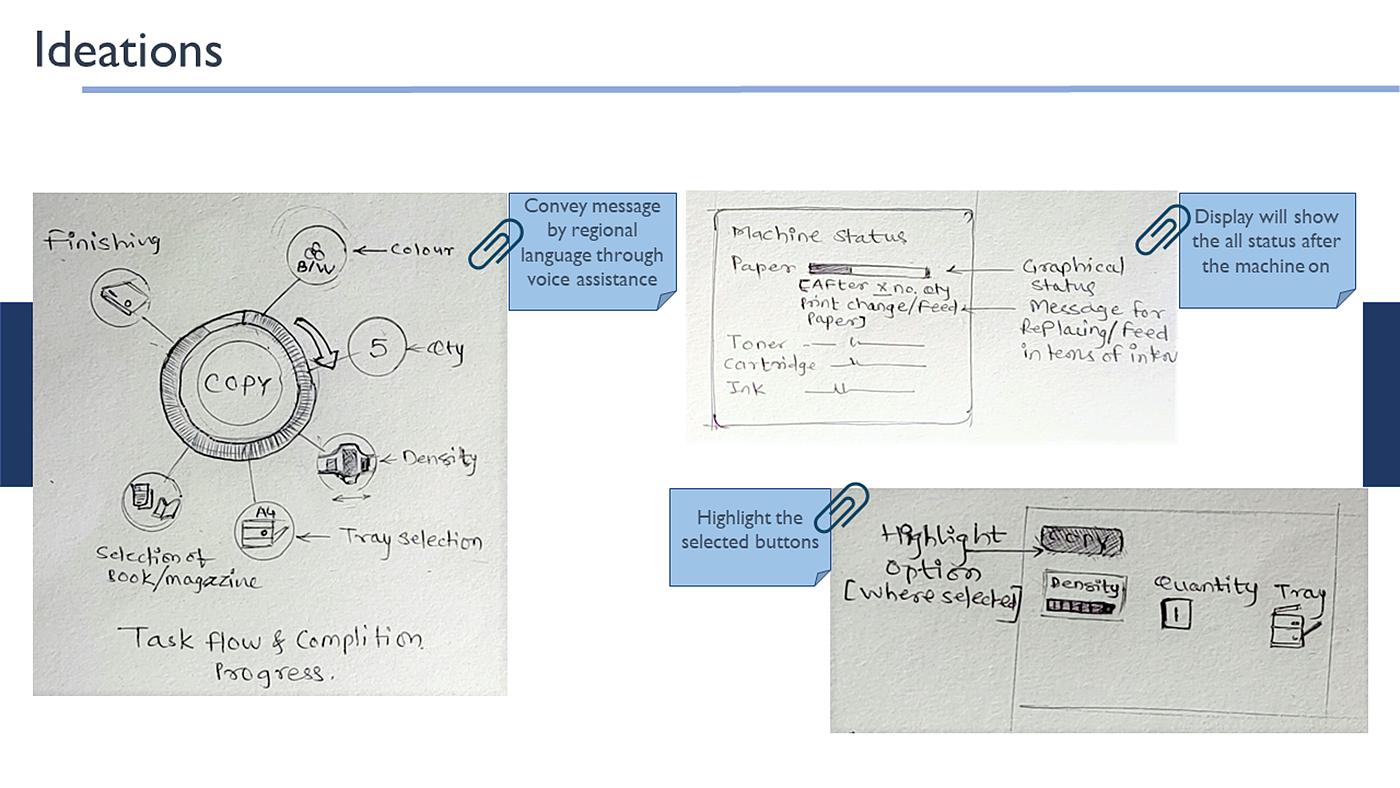 Ideations
Finishing
B/W
Colour
5
Qty
COPY
Density
A4
Tray selection
Selection of
Book/magazine
Task flow & Complition
Progress.
Convey message
by regional
language through
voice assistance
Machine Status
Paper
[After x no. qty
Print change/feed
Paper]
Toner
Cartridge
Ink
Graphical
Status
Message for
Replacing/feed
in terms of
Display will show
the all status after
the machine on
Highlight the
selected buttons
Highlight
option
[where selected]
Copy
Density
Quantity
1
Tray